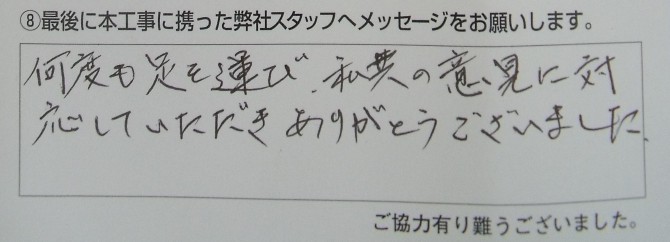 ⑧最後に本工事に携った弊社スタッフへメッセージをお願いします。
何度も足を運び、私共の意見に対
応していただきありがとうございました。
ご協力有り難うございました。